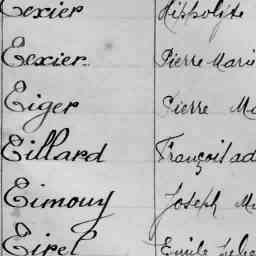 Texier Hippolyte
Texier Pierre Marie
Tiger Pierre Ma
Tillard François ad
Timouy Joseph M
Tirel Emile